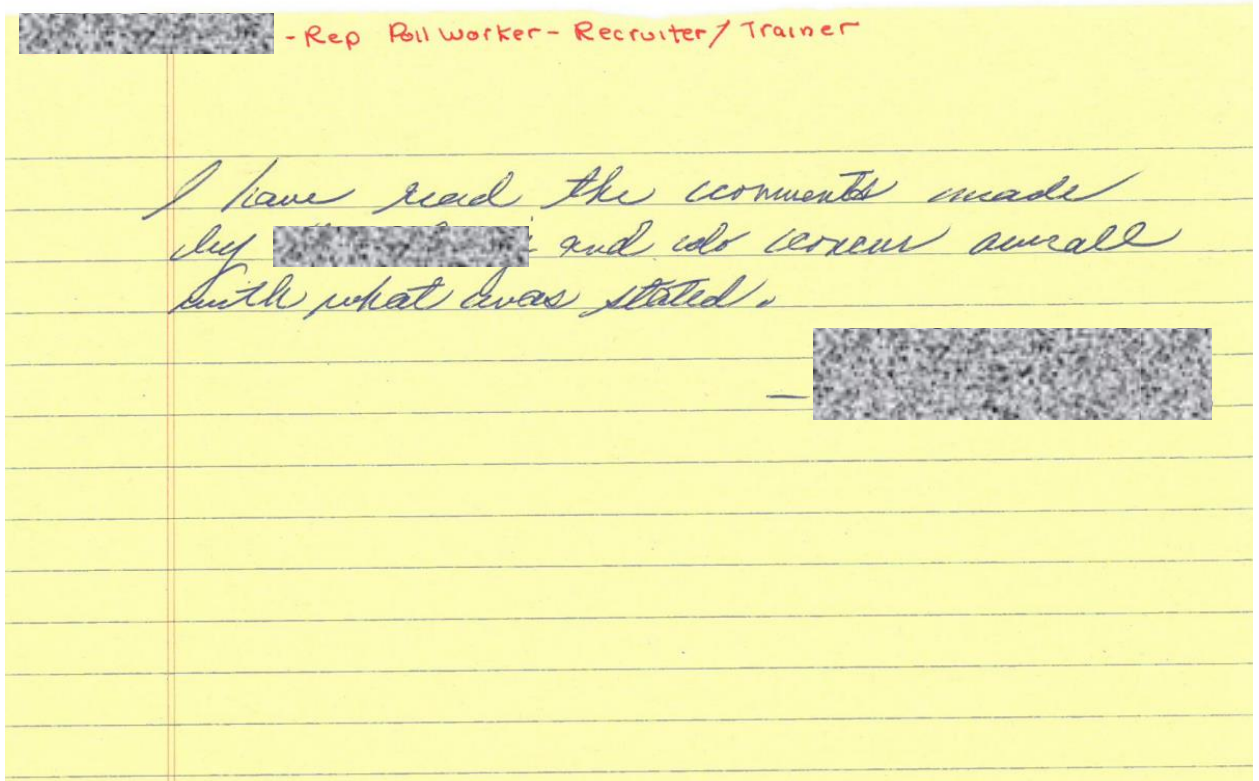 - Rep Poll worker - Recruiter / Trainer
I have read the comments made
by and do concur overall
with what was stated.
-